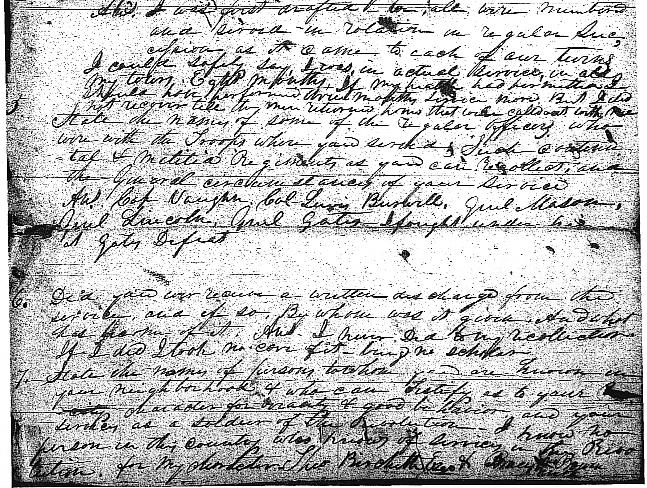 Ans. I was first drafted & then all were numbered
and served in rotation in regular Suc,
cession, as it came to each of our turns
I could safely say I was in actual Service, in all
my tours, Eight months. If my health had permitted I
should have performed three months service more But I did
not recover till the men returned home that were called out with me
State the names of some of the regular officers who
were with the Troops where you served, Such Continen
tal & Militia Regiments as you can Recollect, and
the general circumstances of your Service
Ans. Cap Vaughn, Col Lewis Burwell, Genl Mason,
Genl Lincoln, Genl Gates I fought under
at Gates Defeat
6. Did you ever receive a written discharge from the
service, and if so, By whom was it given And what
has become of it Ans. I never Did to my recollection
If I did I took no care of it being no scholar
7. State the names of persons to whom you are known in
your neighbourhood & who can testify as to your
character for & good behavior and your
services as a soldier of the Revolution I know no
person in this country who knows of my services in the Revo
lution. for my character